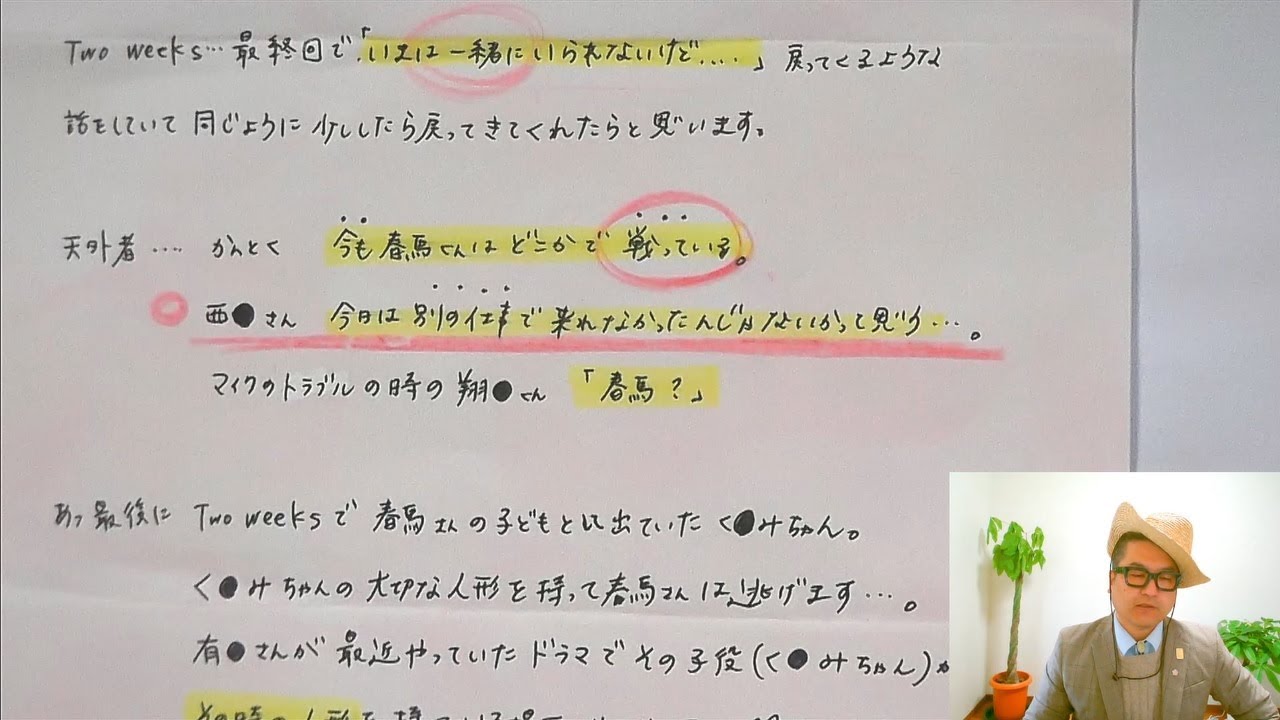 Two weeks… 最終回で「いまは一緒にいられないけど….」戻ってくるような
話をしていて 同じように 少ししたら戻ってきてくれたらと思います。
天外者 …. かんとく 今も春馬くんは どこかで 戦っている。
西●さん 今日は別の仕事で 来れなかったんじゃないかって思う…。
マイクのトラブルの時の 翔●くん 「春馬？」
あっ 最後に Two weeksで 春馬さんの子どもとして出ていた く●みちゃん。
く●みちゃんの 大切な人形を持って春馬さんは逃げます…。
有●さんが 最近やっていたドラマで その子役(く●みちゃん)が
その時の人形を持っている